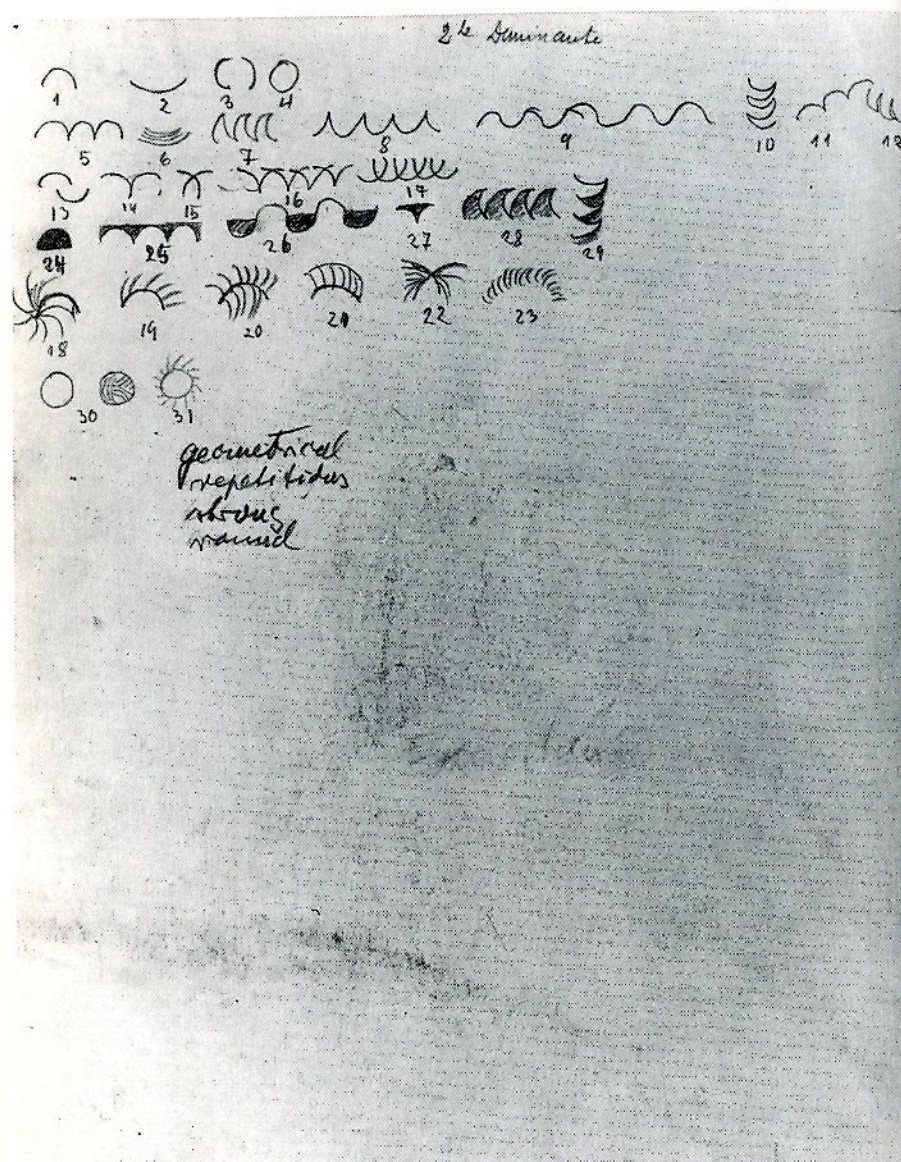 2te Dominante
1 2 3 4
5 6 7 8 9 10 11 12
13 14 15 16 17
24 25 26 27 28 29
18 19 20 21 22 23
30 31
geometrical
repetitions
strong
round